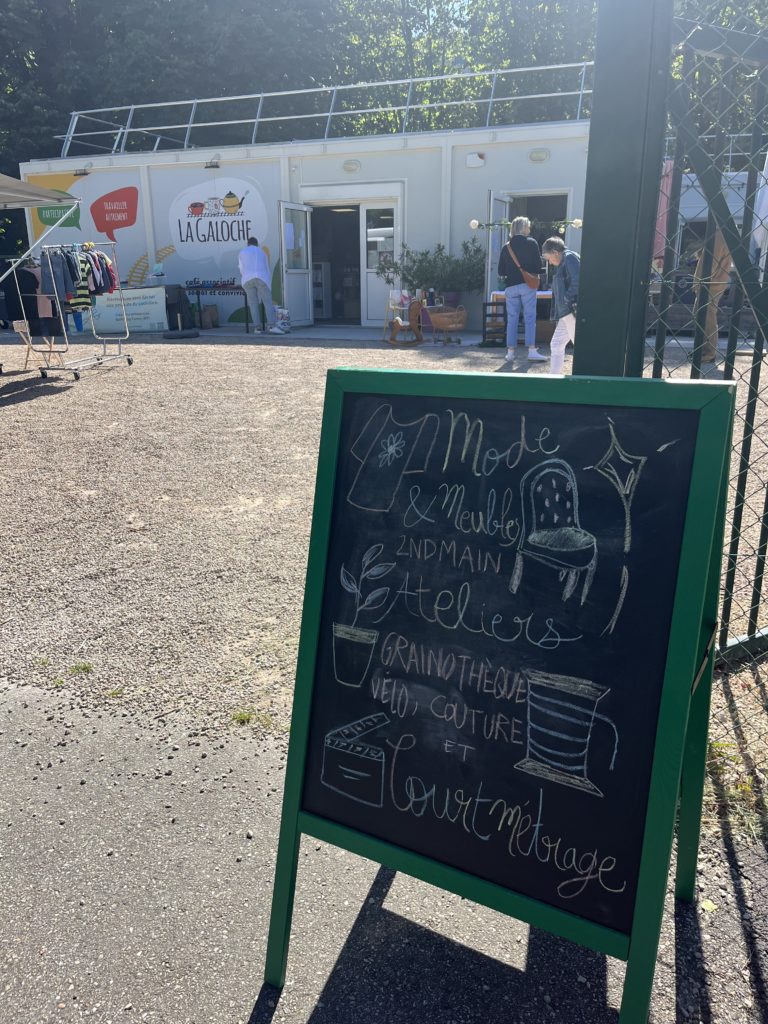 PARTICIPATIVE
TRAVAILLER
AUTREMENT
LA GALOCHE
café associatif
et convivial
Mode
& Meubles
2ND MAIN
Ateliers
GRAINOTHÈQUE
VÉLO, COUTURE
ET
Court métrage